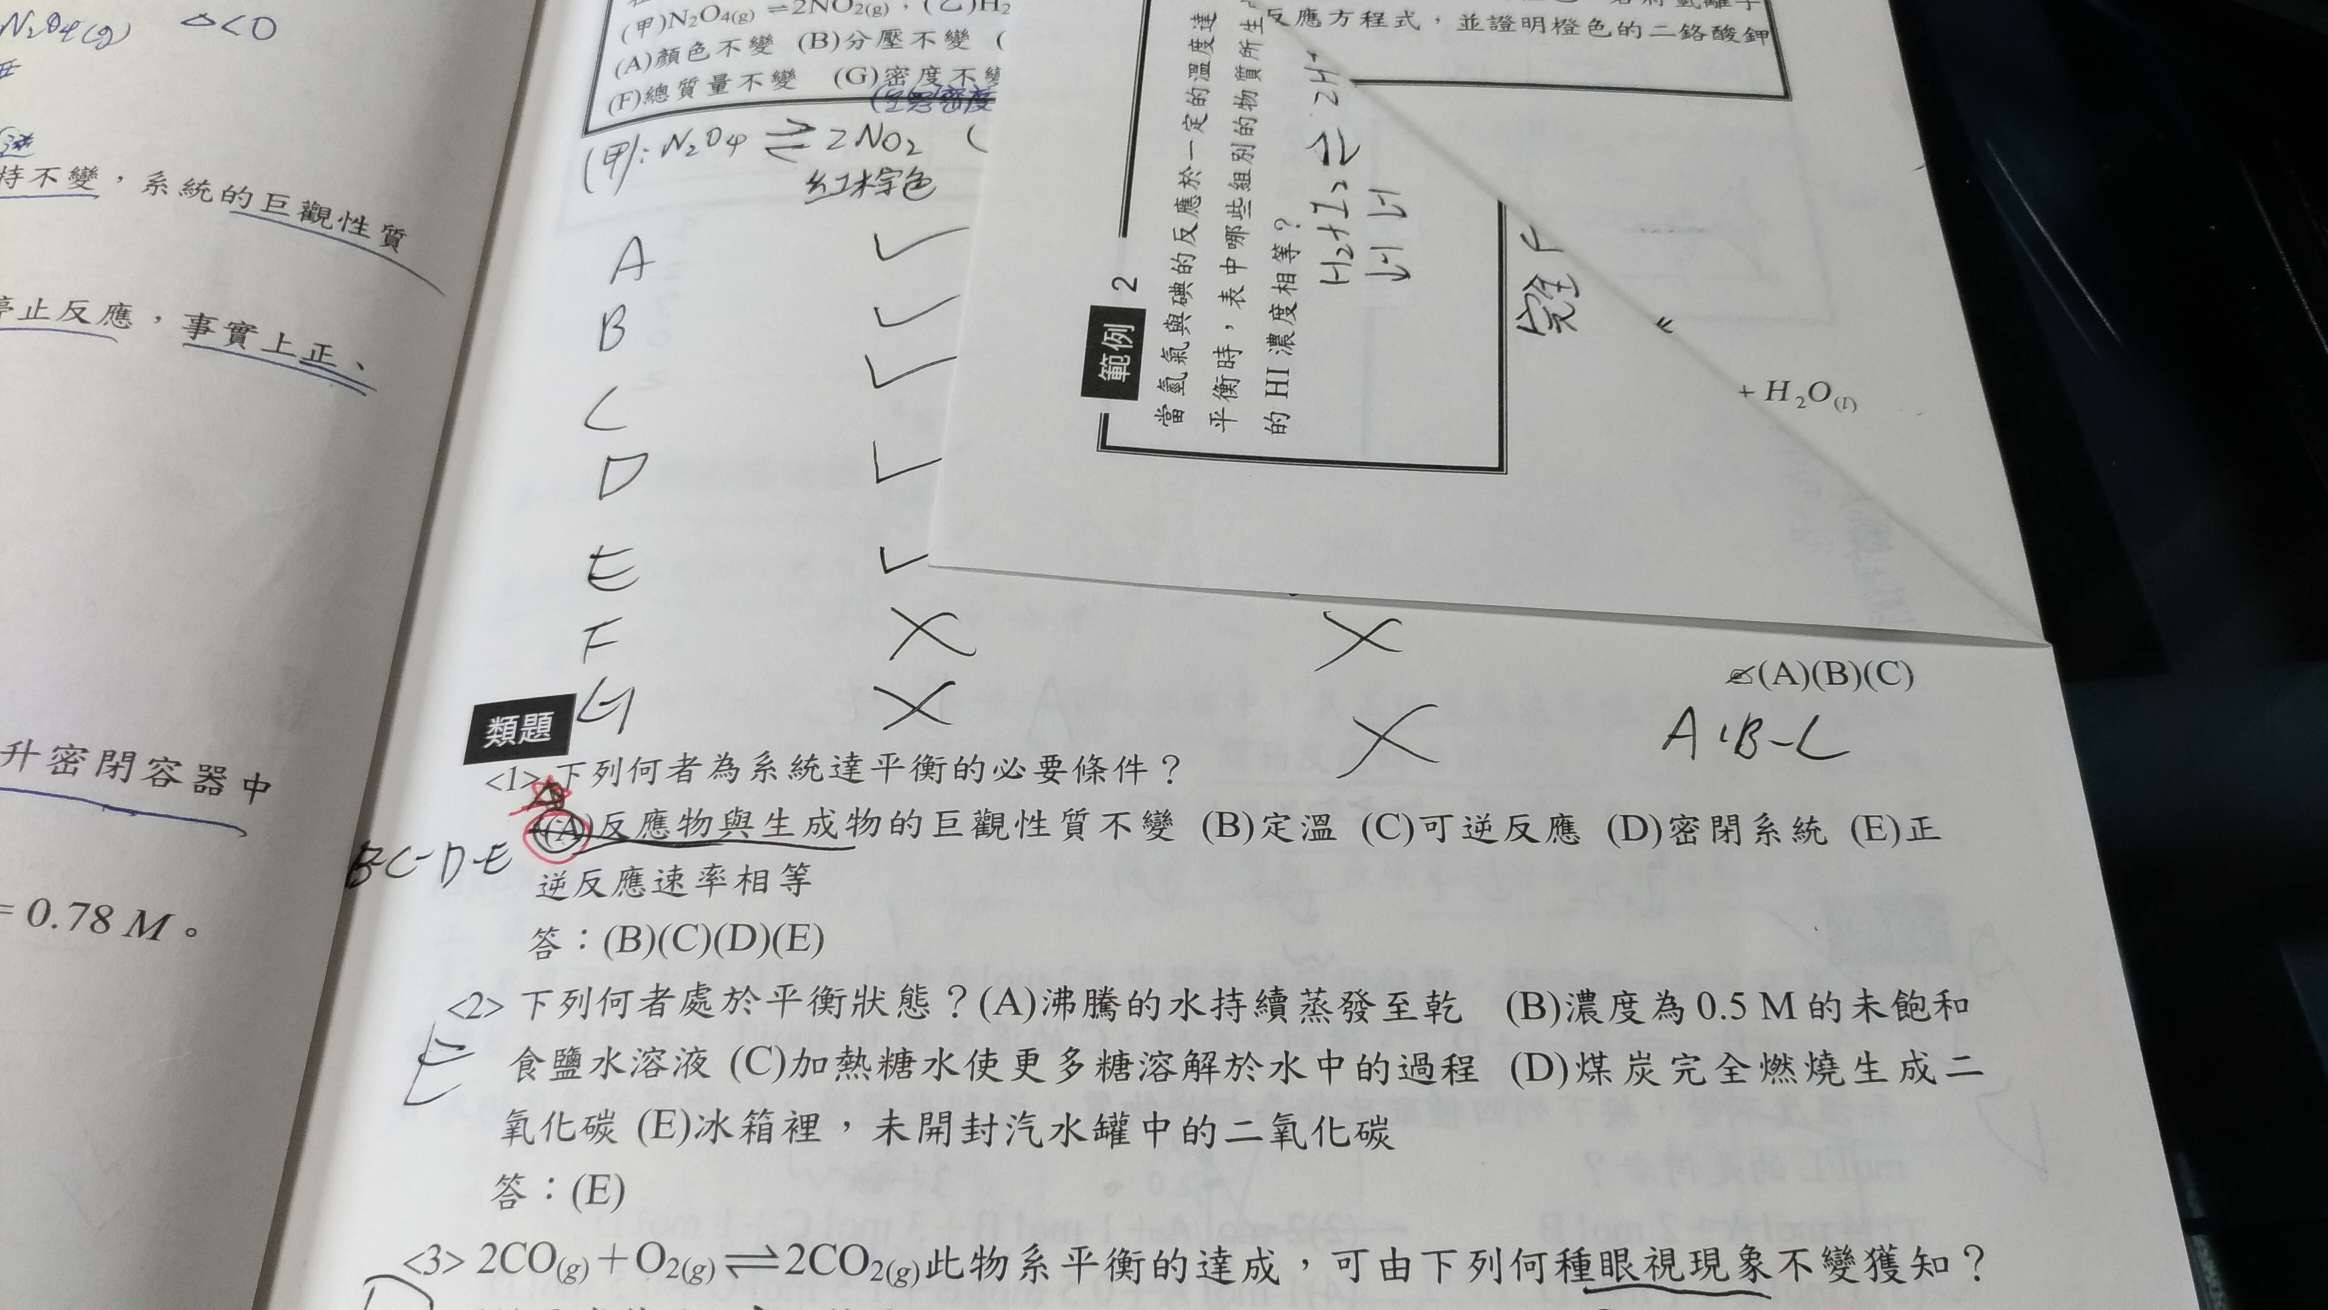 N₂O₄(g) △<0
持不變，系統的巨觀性質
停止反應，事實上正、
升密閉容器中
= 0.78 M。
(甲)N₂O₄(g) ⇌2NO₂(g)，(乙)H₂
(A)顏色不變 (B)分壓不變 (
(F)總質量不變 (G)密度不變
(甲): N₂O₄ ⇌ 2NO₂ (
紅棕色
A ✓
B ✓
C ✓
D ✓
E ✓
F ✗ ✗
G ✗ ✗
反應方程式，並證明橙色的二鉻酸鉀
範例 2
當氫氣與碘的反應於一定的溫度達
平衡時，表中哪些組別的物質所生
的 HI 濃度相等？
H₂+I₂ ⇌ 2H
完全
+ H₂O(l)
(A)(B)(C)
A、B-C
類題
<1> 下列何者為系統達平衡的必要條件？
(A)反應物與生成物的巨觀性質不變 (B)定溫 (C)可逆反應 (D)密閉系統 (E)正
B-C-D-E
逆反應速率相等
答：(B)(C)(D)(E)
<2> 下列何者處於平衡狀態？(A)沸騰的水持續蒸發至乾 (B)濃度為 0.5 M 的未飽和
E
食鹽水溶液 (C)加熱糖水使更多糖溶解於水中的過程 (D)煤炭完全燃燒生成二
氧化碳 (E)冰箱裡，未開封汽水罐中的二氧化碳
答：(E)
<3> 2CO(g)＋O₂(g)⇌2CO₂(g)此物系平衡的達成，可由下列何種眼視現象不變獲知？